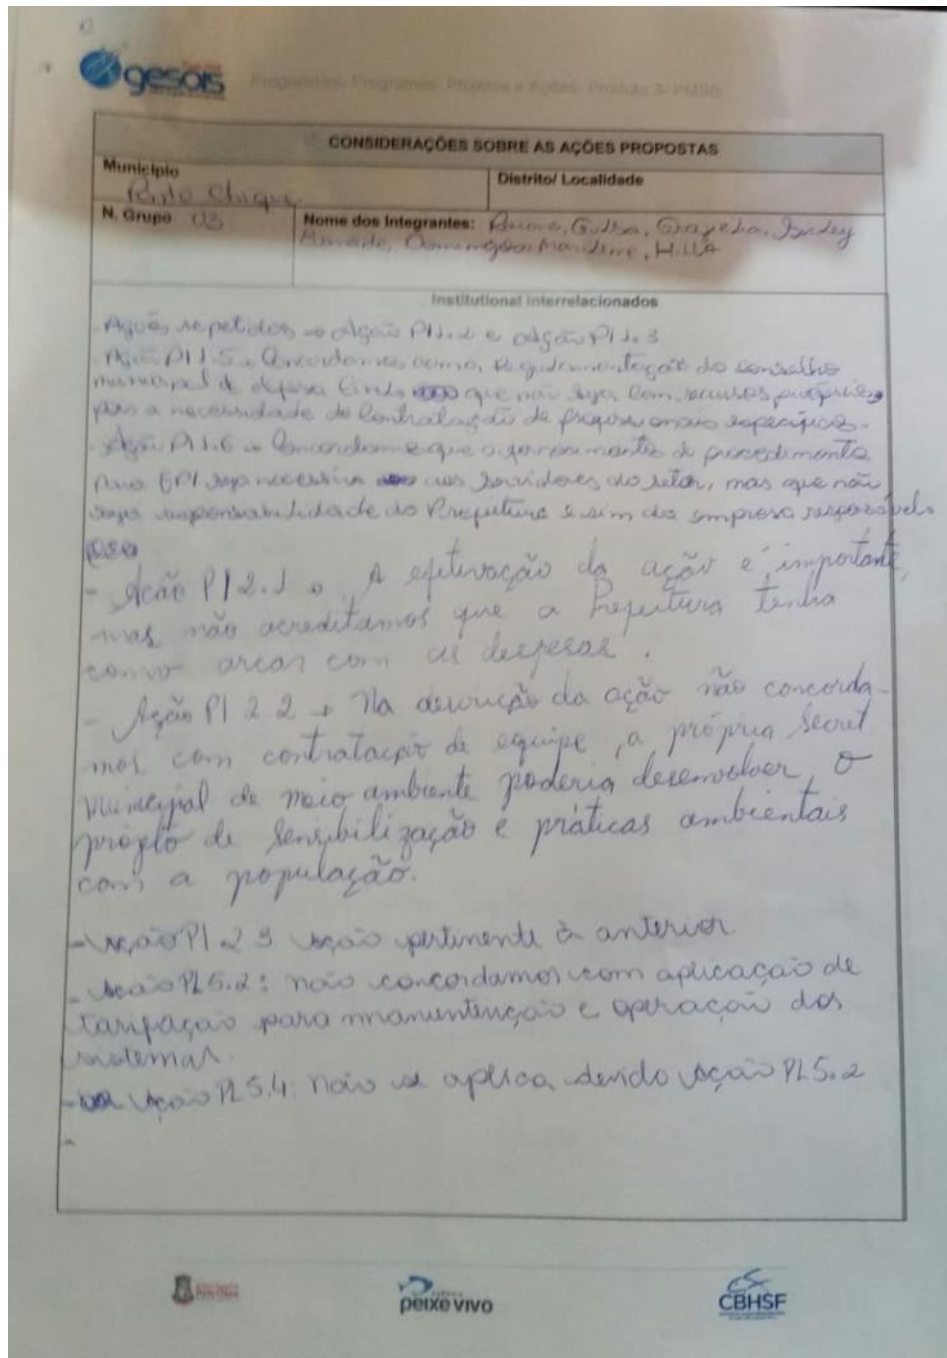 gesois
Prognóstico, Programas, Projetos e Ações- Produto 3- PMSB
CONSIDERAÇÕES SOBRE AS AÇÕES PROPOSTAS
Município
Distrito/ Localidade
Ponto Chique
N. Grupo 03
Nome dos Integrantes:
Institutional interrelacionados
Ações repetidas → Ação PI1.2 e Ação PI1.3
- Ação PI1.5 Concordamos com a regulamentação do conselho
municipal de defesa que não seja com recursos próprios
a necessidade de contratação de profissionais específicos.
- Ação PI1.6 → Concordamos que o de procedimento
para EPI seja necessário aos servidores do setor, mas que não
seja responsabilidade da Prefeitura e sim da empresa responsável
- Ação PI2.1 A efetivação da ação é importante,
mas não acreditamos que a Prefeitura tenha
como arcar com as despesas.
- Ação PI 2.2 → Na descrição da ação não concorda-
mos com contratação de equipe, a própria Secret
municipal de meio ambiente poderia desenvolver o
projeto de sensibilização e práticas ambientais
com a população.
- Ação PI 2.3 Ação pertinente à anterior
- Ação PI.5.2: não concordamos com aplicação de
tarifação para manuntenção e operação dos
sistemas.
- Ação PI.5.4: não se aplica devido Ação PI.5.2
-
peixe vivo
CBHSF